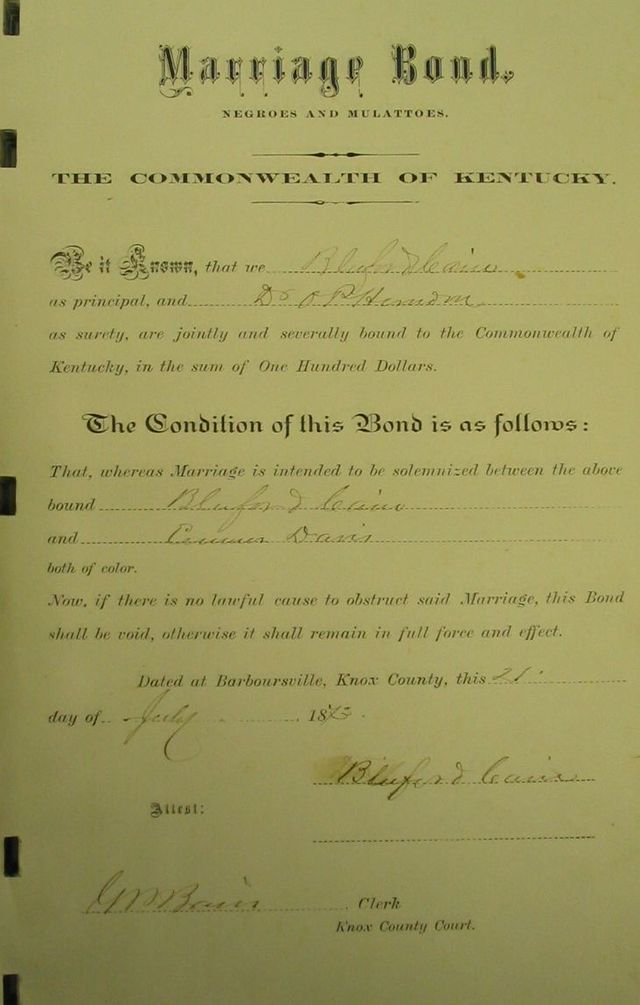 Marriage Bond,
NEGROES AND MULATTOES.
THE COMMONWEALTH OF KENTUCKY.
Be it Known, that we Bluford Cain
as principal, and Dr O P Herndon
as surety, are jointly and severally bound to the Commonwealth of
Kentucky, in the sum of One Hundred Dollars.
The Condition of this Bond is as follows:
That, whereas Marriage is intended to be solemnized between the above
bound Bluford Cain
and Davis
both of color.
Now, if there is no lawful cause to obstruct said Marriage, this Bond
shall be void, otherwise it shall remain in full force and effect.
Dated at Barboursville, Knox County, this 21
day of July 18
Bluford Cain
Attest:
Clerk
Knox County Court.